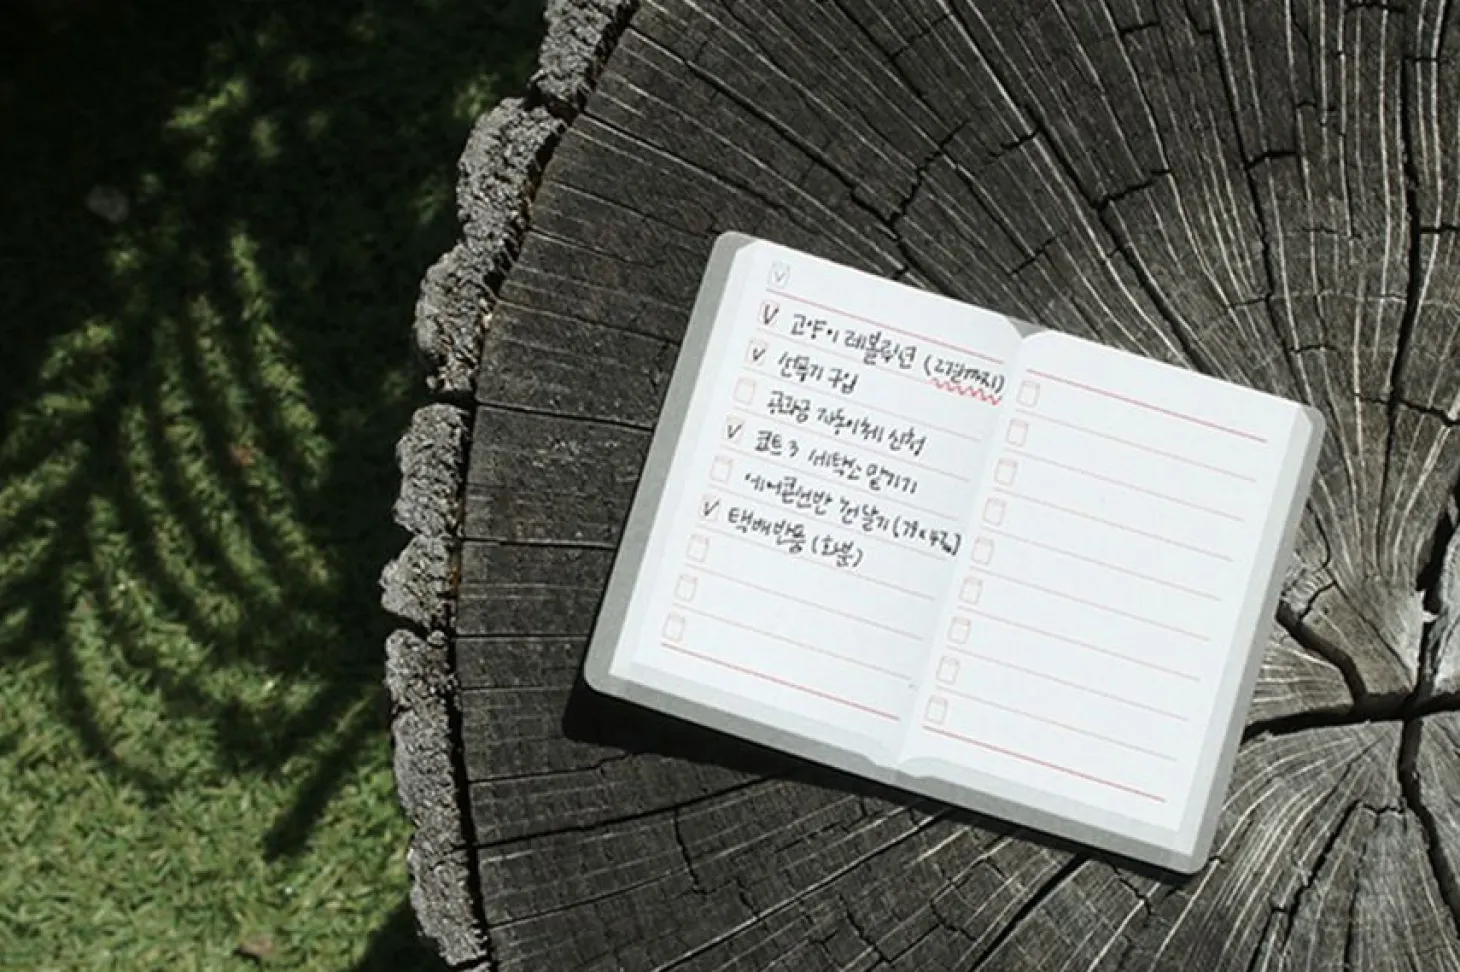 고양이 레볼루션 (2권까지)
선풍기 구입
공과금 자동이체 신청
코트 3 세탁소 맡기기
에어콘선반
택배반품 (화분)